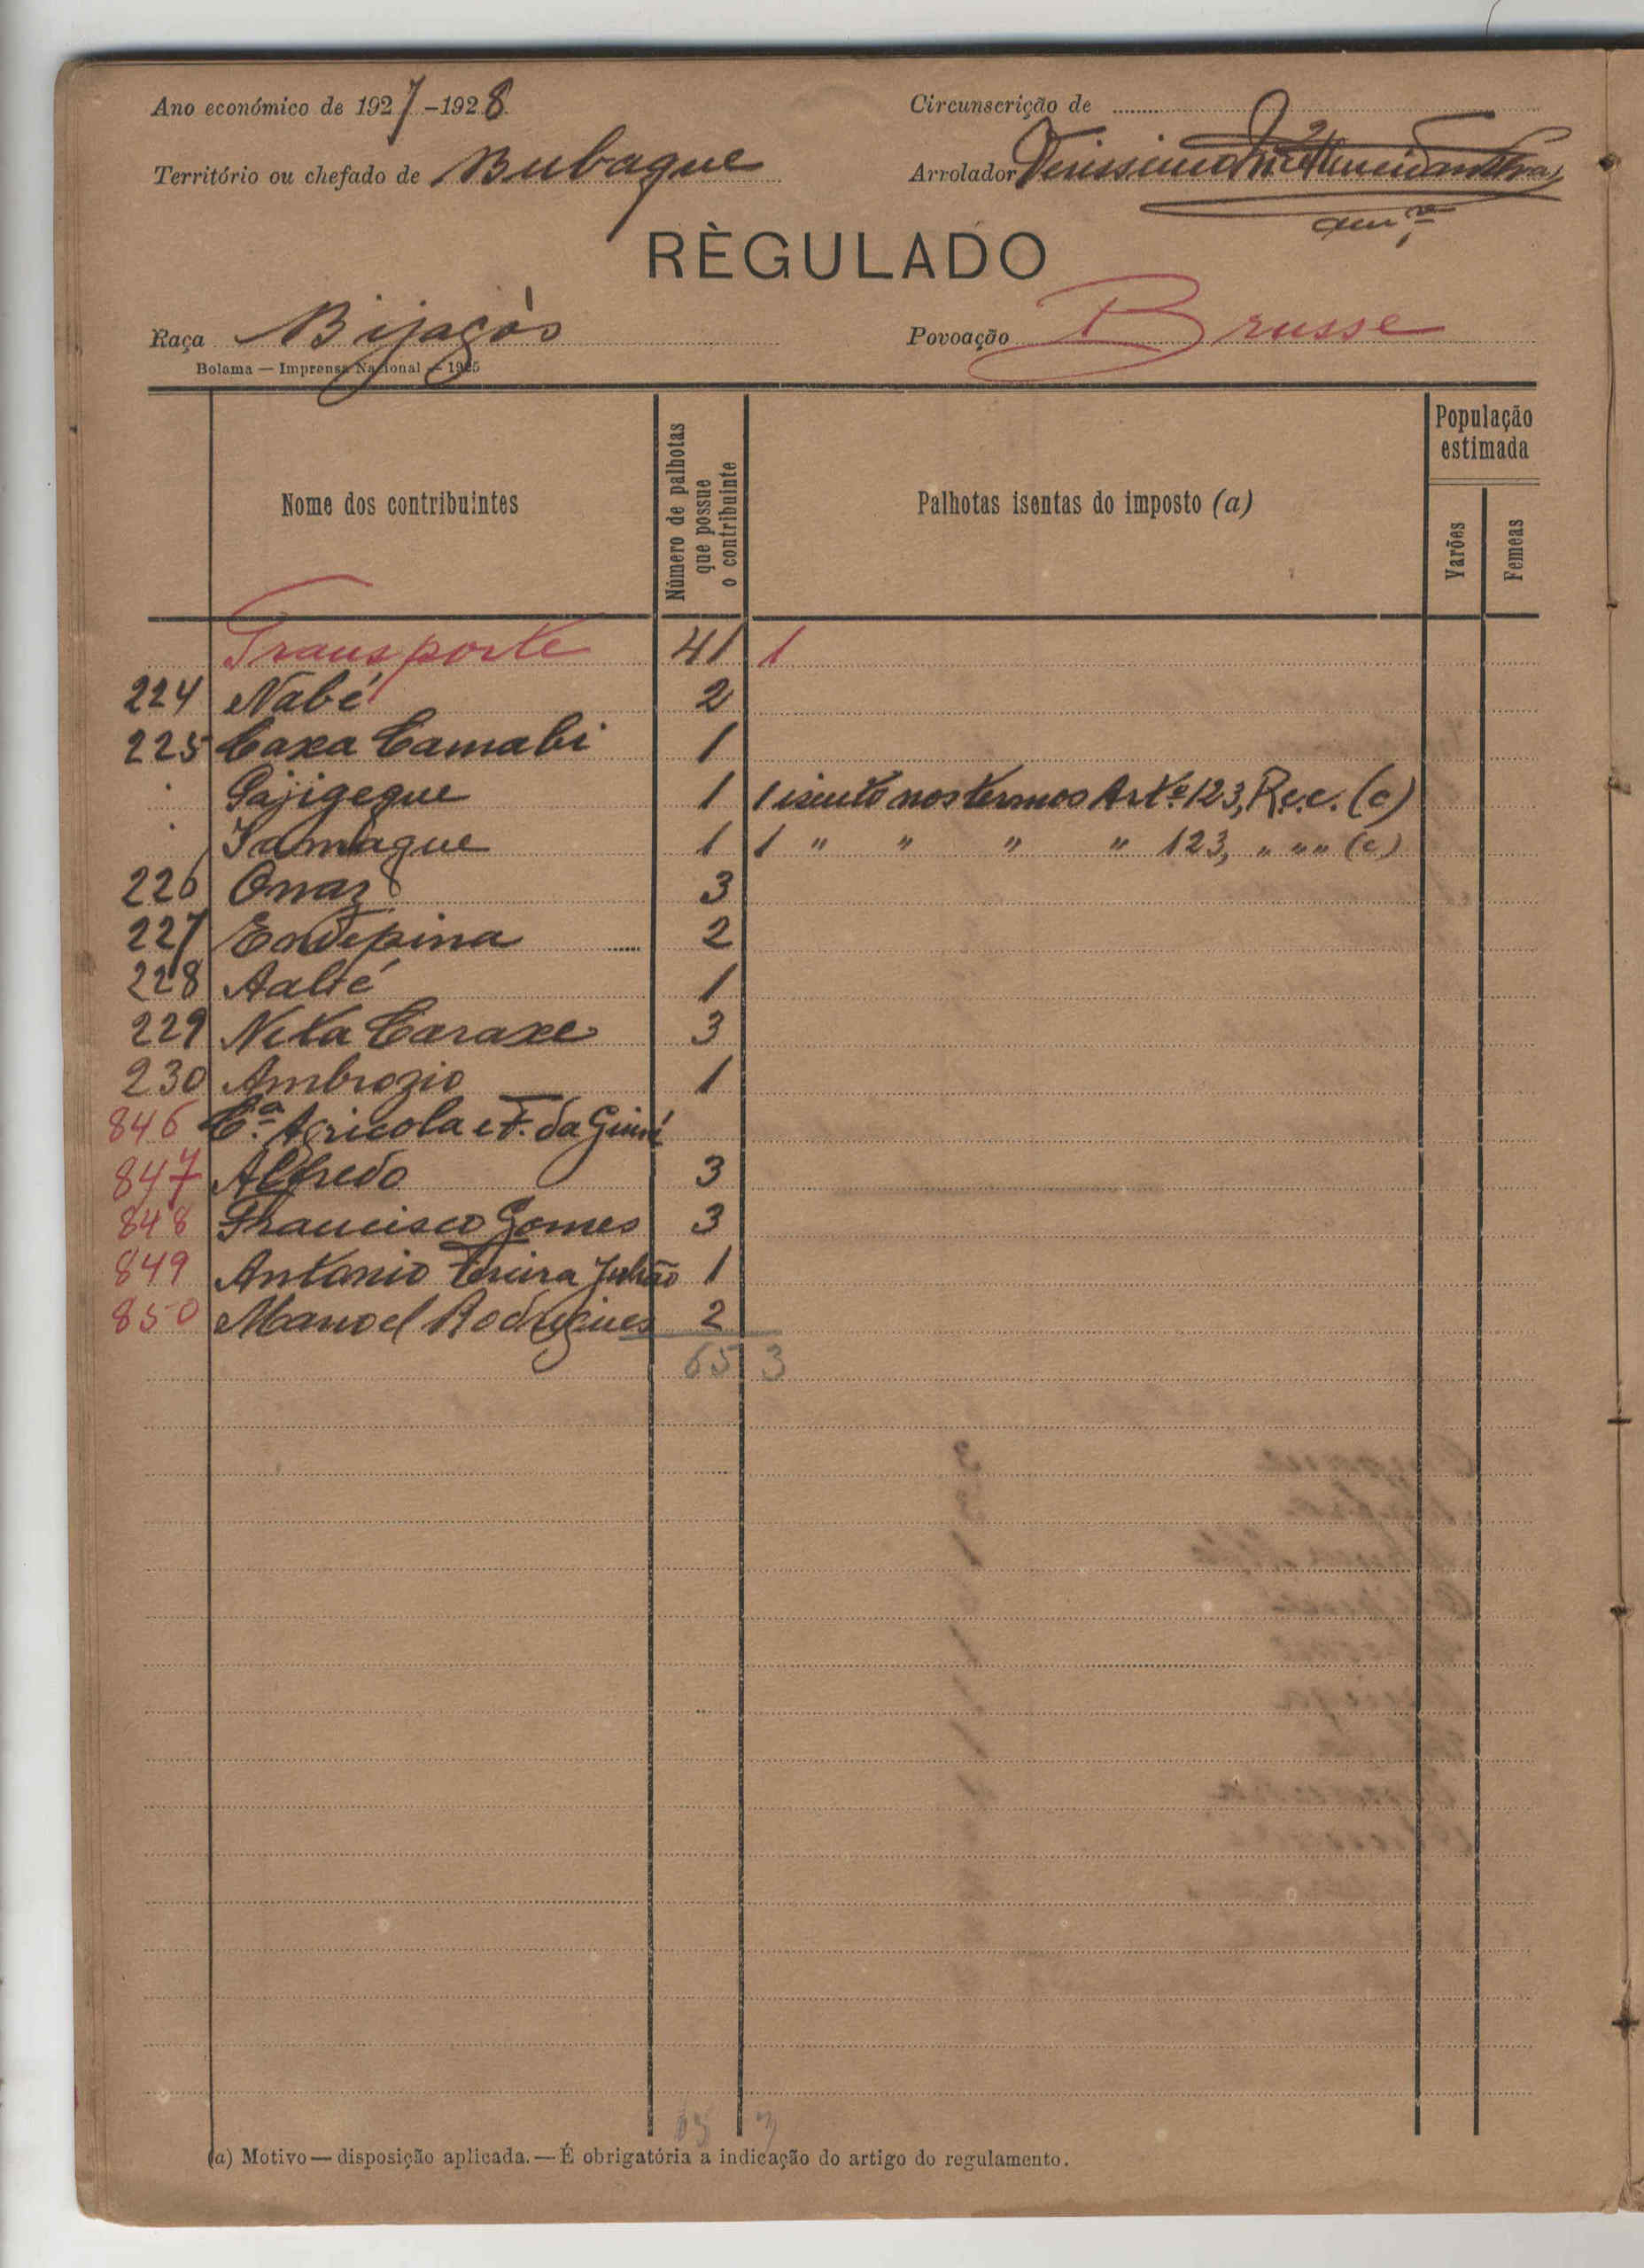 Ano económico de 1927-1928
Circunscrição de
Território ou chefado de Bubaque
Arrolador Verissimo
RÈGULADO
Raça Bijagós
Povoação Brusse
Bolama — Imprensa Nacional — 1925
Nome dos contribuintes
Número de palhotas
que possue
o contribuinte
Palhotas isentas do imposto (a)
População
estimada
Varões
Femeas
Transporte 41 1
224 Nabé 2
225 Caxa Camabi 1
Gajigegue 1 1 isento nos termos Artº 123, R.c.c. (c)
1 1 " " " " 123, " " " (c)
226 Onaz 3
227 Endepina 2
228 Aalté 1
229 Neta Caraxe 3
230 Ambrozio 1
846 Cª. Agricola e F. da Guiné
847 Alfredo 3
848 Francisco Gomes 3
849 Antonio Julião 1
850 Manoel Rodrigues 2
65 3
65 3
(a) Motivo — disposição aplicada. — É obrigatória a indicação do artigo do regulamento.